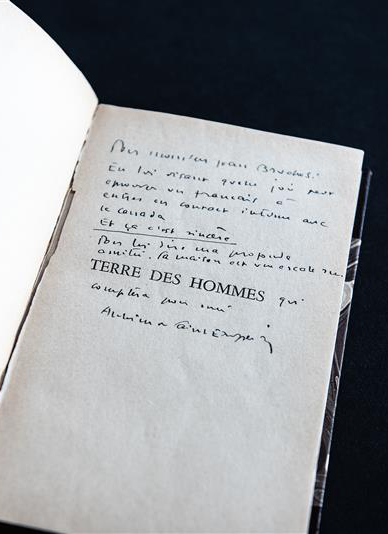 Pour monsieur Jean Bruchési
En lui disant quelle joie peut
éprouver un français à
entrer en contact intime avec
le canada
Et ça c'est sincère
Pour lui dire ma profonde
amitié. Sa maison est une escale
TERRE DES HOMMES qui
comptera pour moi
Antoine de Saint Exupéry